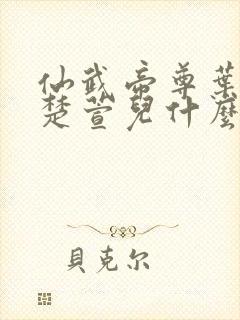 仙武帝尊葉
楚萱兒什麼
貝克尔